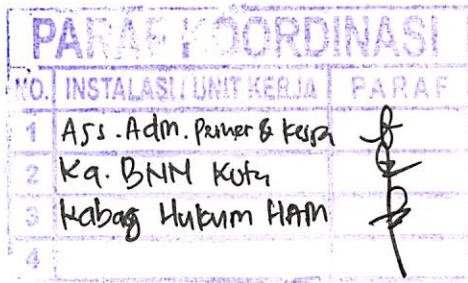 PARAF KOORDINASI
NO. INSTALASI / UNIT KERJA PARAF
1 Ass. Adm. Pemer & Kesra
2 Ka. BNN Kota
3 Kabag Hukum HAM
4